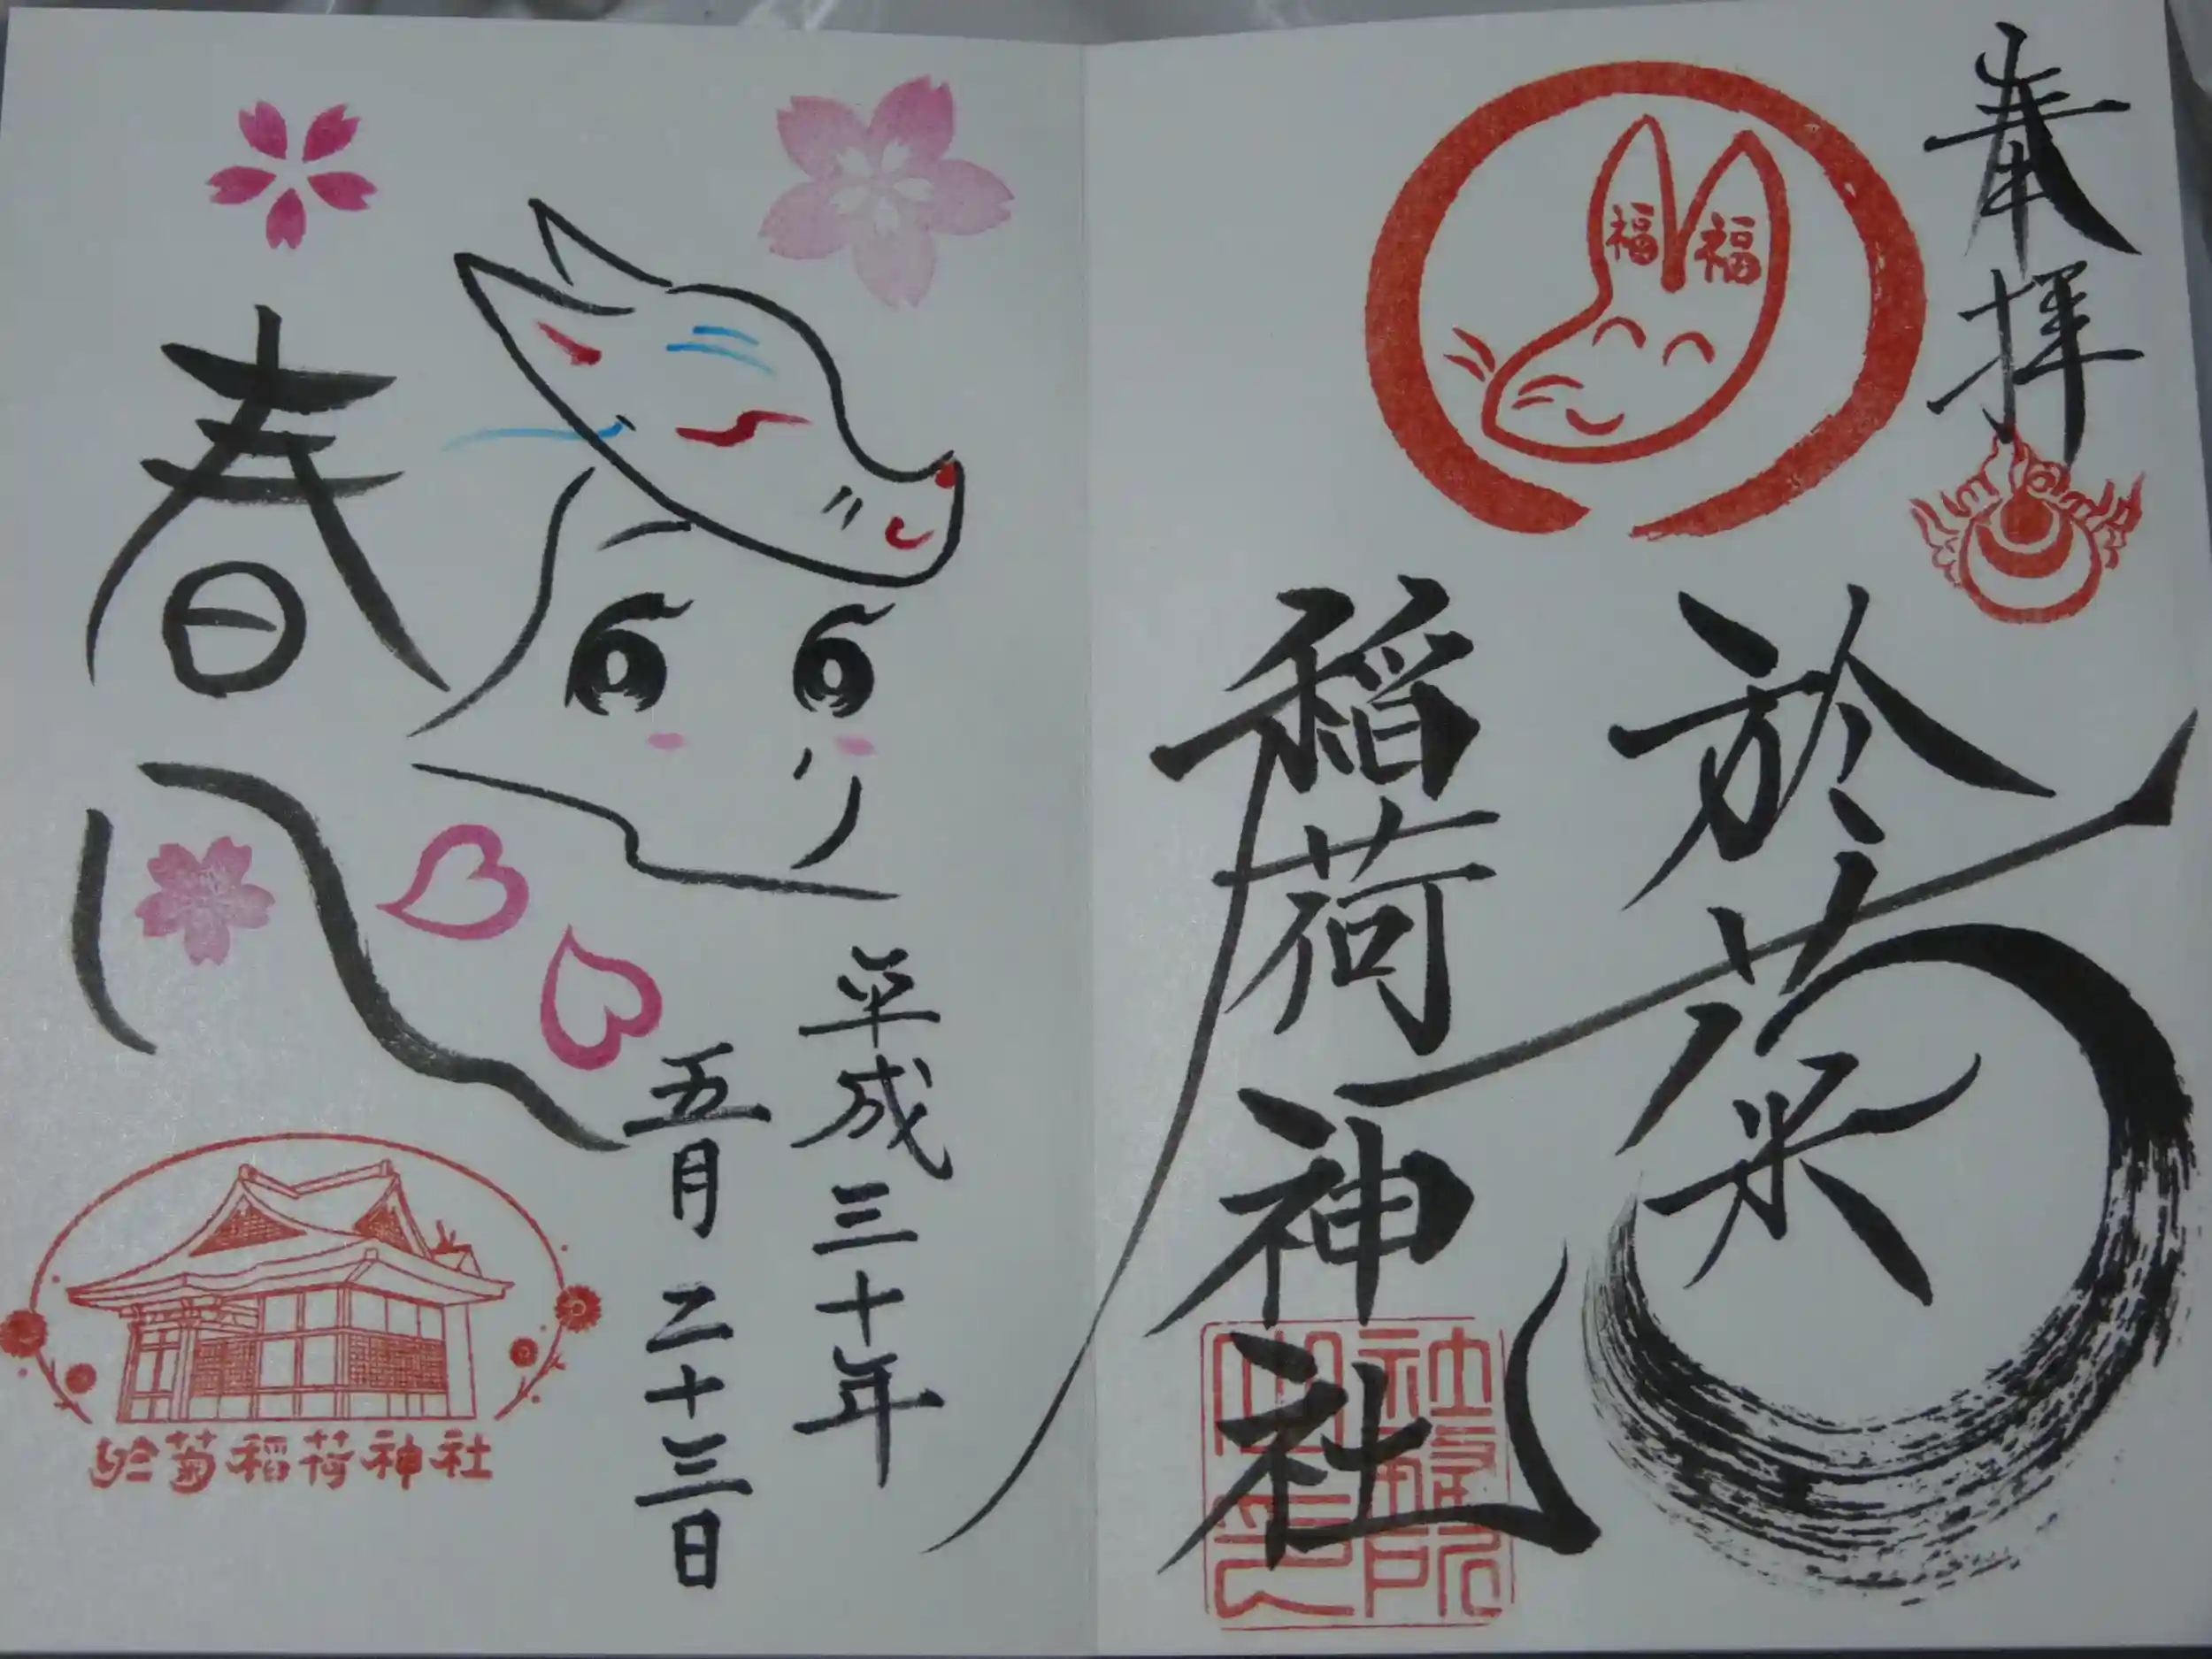 奉拝
福福
於菊
稲荷神社
社務所
之印
平成三十年
五月二十三日
春
於菊稲荷神社